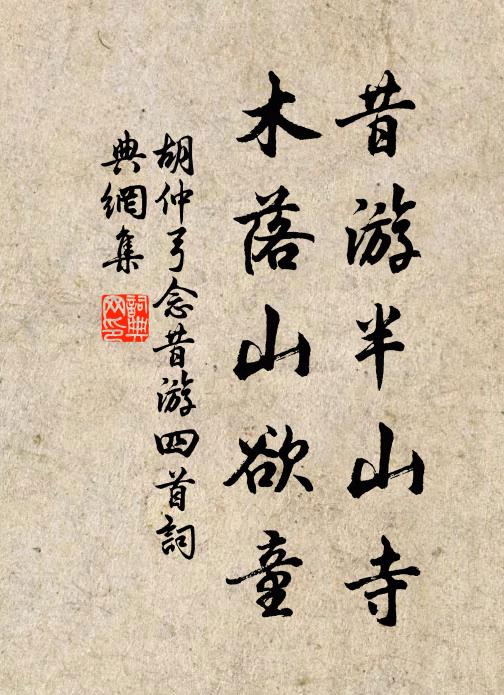 昔游半山寺
木落山欲童
胡仲弓念昔游四首詞
典網集
詞典網印